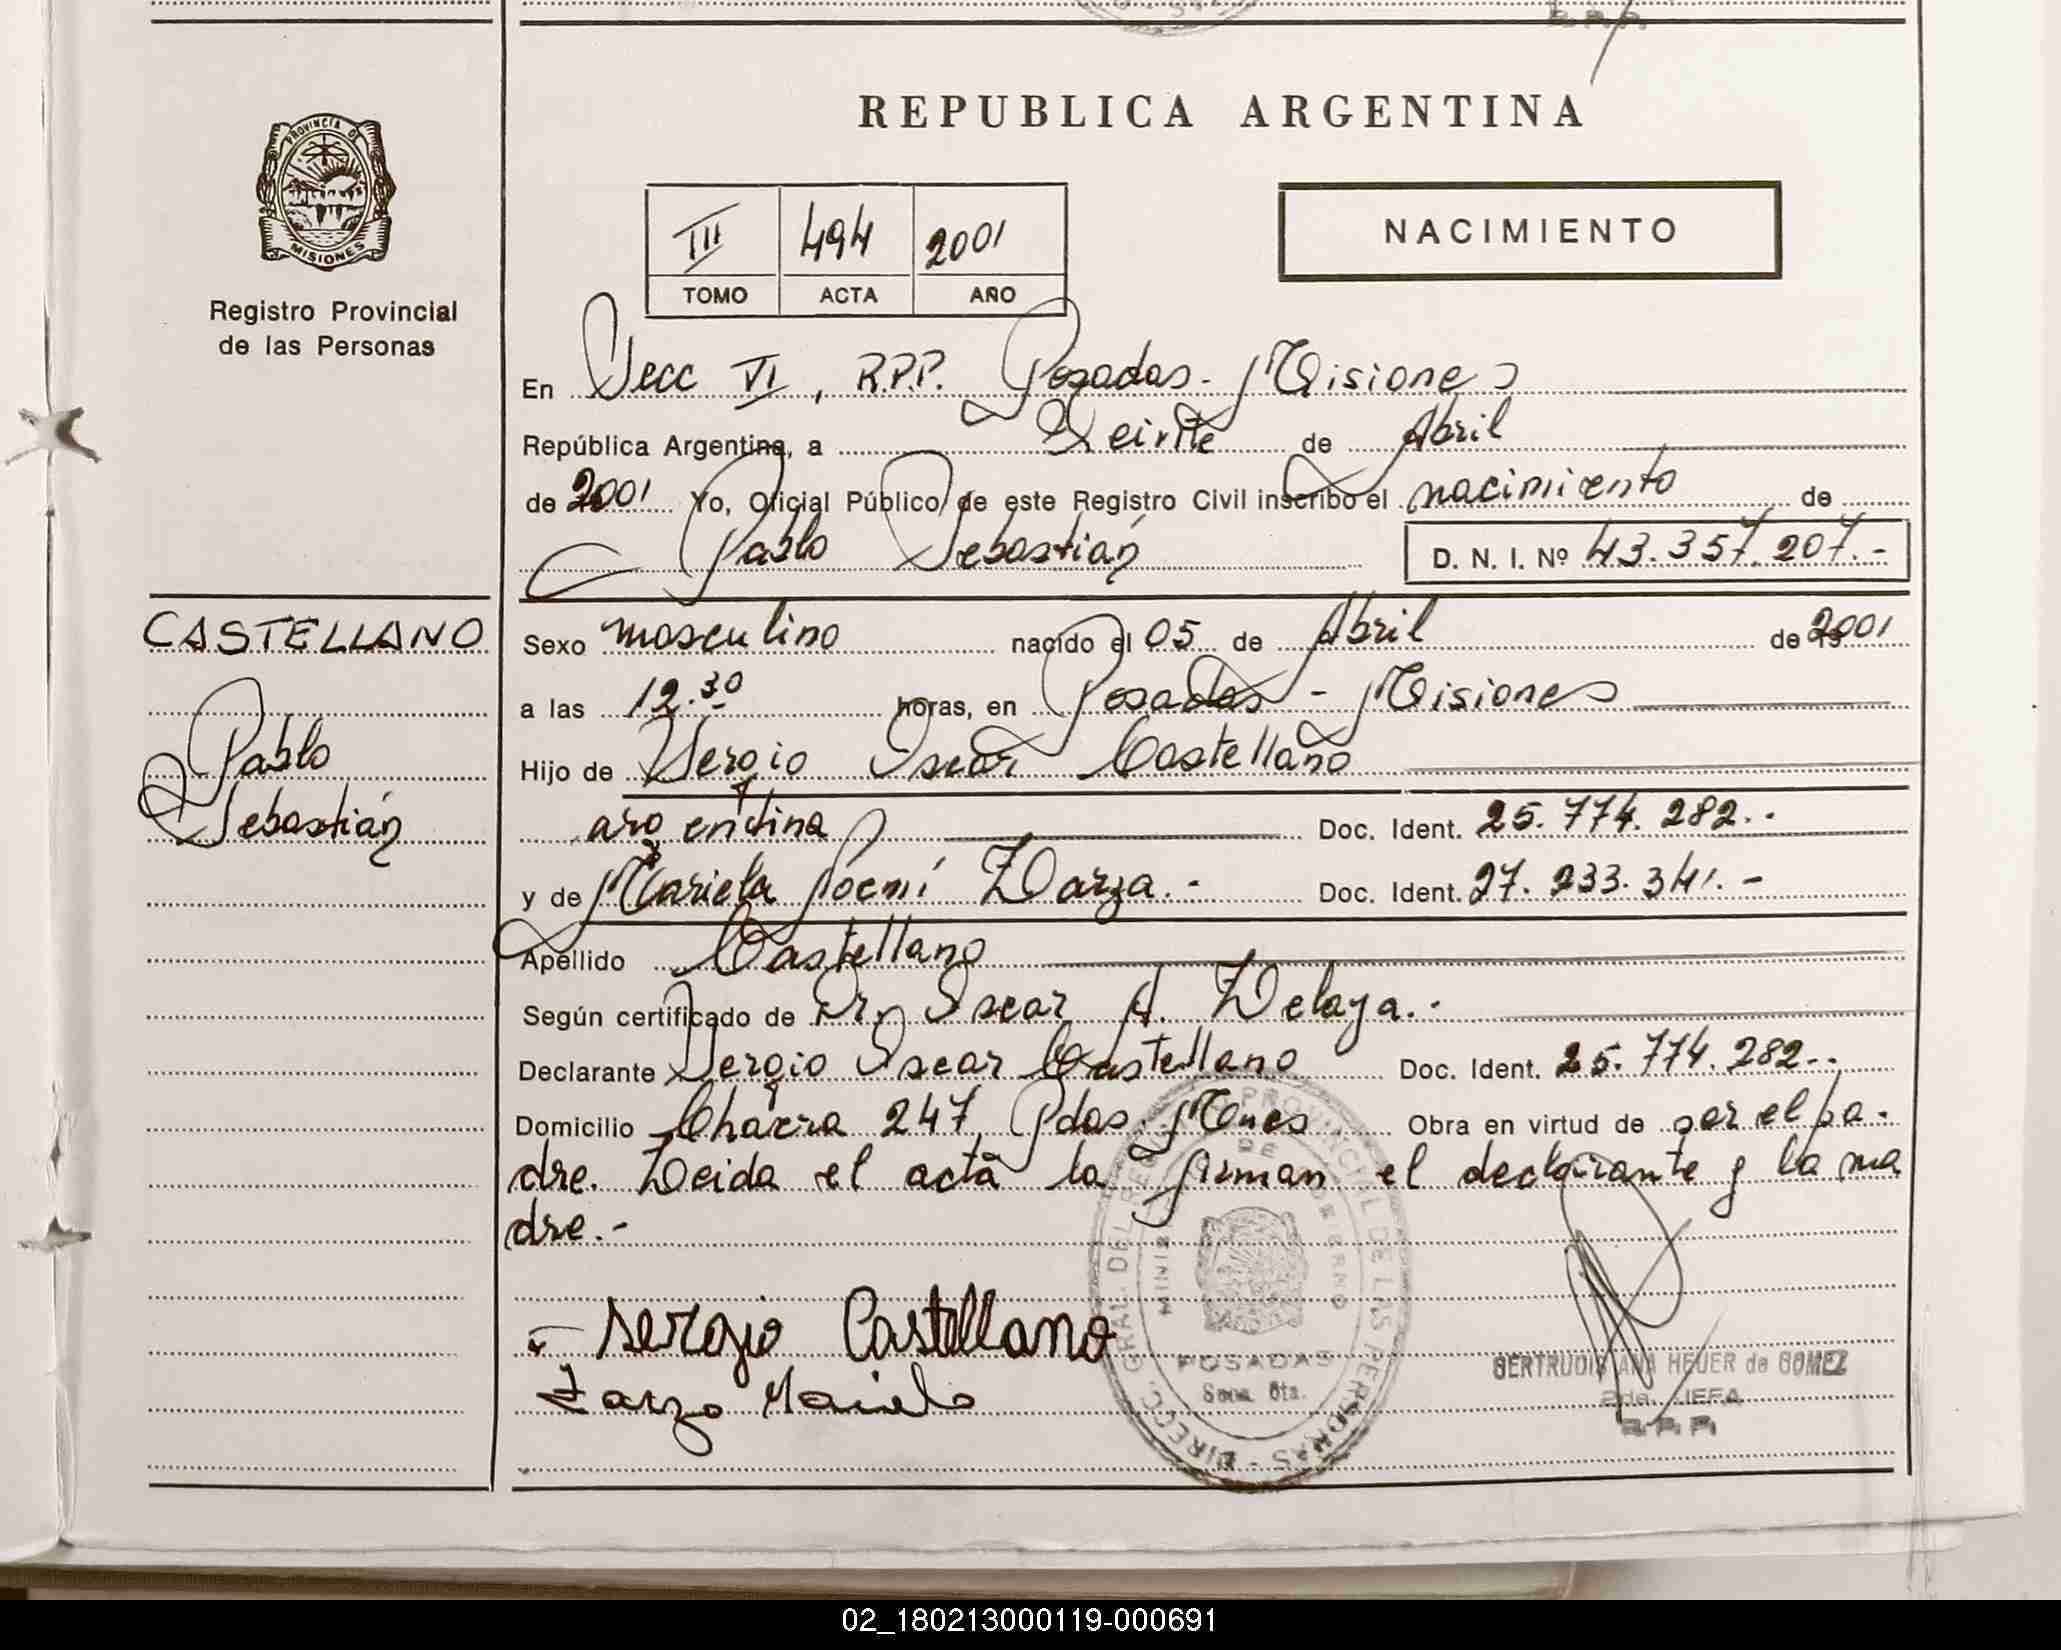 REPUBLICA ARGENTINA
PROVINCIA DE
MISIONES
Registro Provincial
de las Personas
III 494 2001
TOMO ACTA AÑO
NACIMIENTO
En Secc VI, R.P.P. Posadas - Misiones
República Argentina, a Veinte de Abril
de 2001 Yo, Oficial Público de este Registro Civil inscribo el nacimiento de
Pablo Sebastián
D. N. I. Nº 43.357.207.-
CASTELLANO
Pablo
Sebastián
Sexo masculino nacido el 05 de Abril de 2001
a las 12.30 horas, en Posadas - Misiones
Hijo de Sergio Oscar Castellano
argentina Doc. Ident. 25.774.282.-
y de Mariela Noemí Zarza.- Doc. Ident. 27.233.341.-
Apellido Castellano
Según certificado de Dr. Oscar A. Zelaya.-
Declarante Sergio Oscar Castellano Doc. Ident. 25.774.282.-
Domicilio Chacra 247, Pdas. Mnes Obra en virtud de ser el pa-
dre. Leida el acta la firman el declarante y la ma
dre.-
Sergio Castellano
Zarza Mariela
DIRECC. GRAL. DEL REG. PROVINCIAL DE LAS PERSONAS
MINIS DE GOBIERNO
POSADAS
Secc. 6ta.
GERTRUDIS ANA HEUER de GOMEZ
2da. JEFA
R.P.P.
02_180213000119-000691